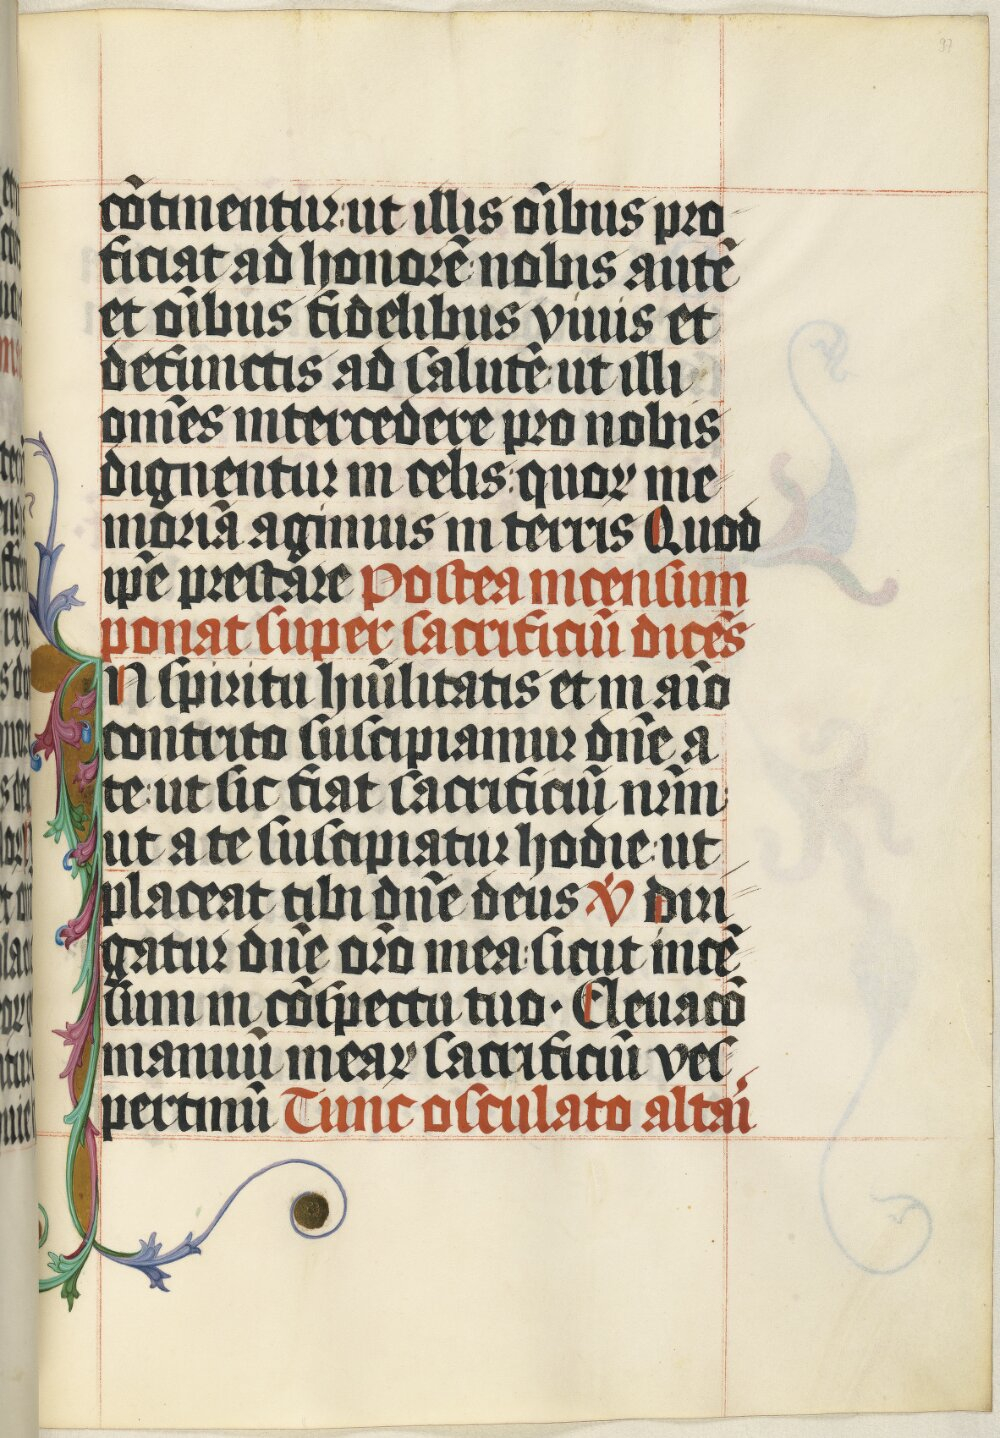 97
cōtinentur: ut illis oībus pro
ficiat ad honorē: nobis autē
et oībus fidelibus viuis et
defunctis ad salutē: ut illi
om̄es intercedere pro nobis
dignentur in celis: quoꝝ me
moriā agimus in terris Quod
ip̄e prestare Postea incensum
ponat super sacrificiū dicēs
IN spiritu hūilitatis et in aīo
contrito suscipiamur dn̄e a
te: ut sic fiat sacrificiū nr̄m
ut a te suscipiatur hodie: ut
placeat tibi dn̄e deus ℣ Diri
gatur dn̄e or̄o mea: sicut incē
sum in cōspectu tuo. Eleuacō
manuū mearꝝ sacrificiū ves
pertinū Tunc osculato altari